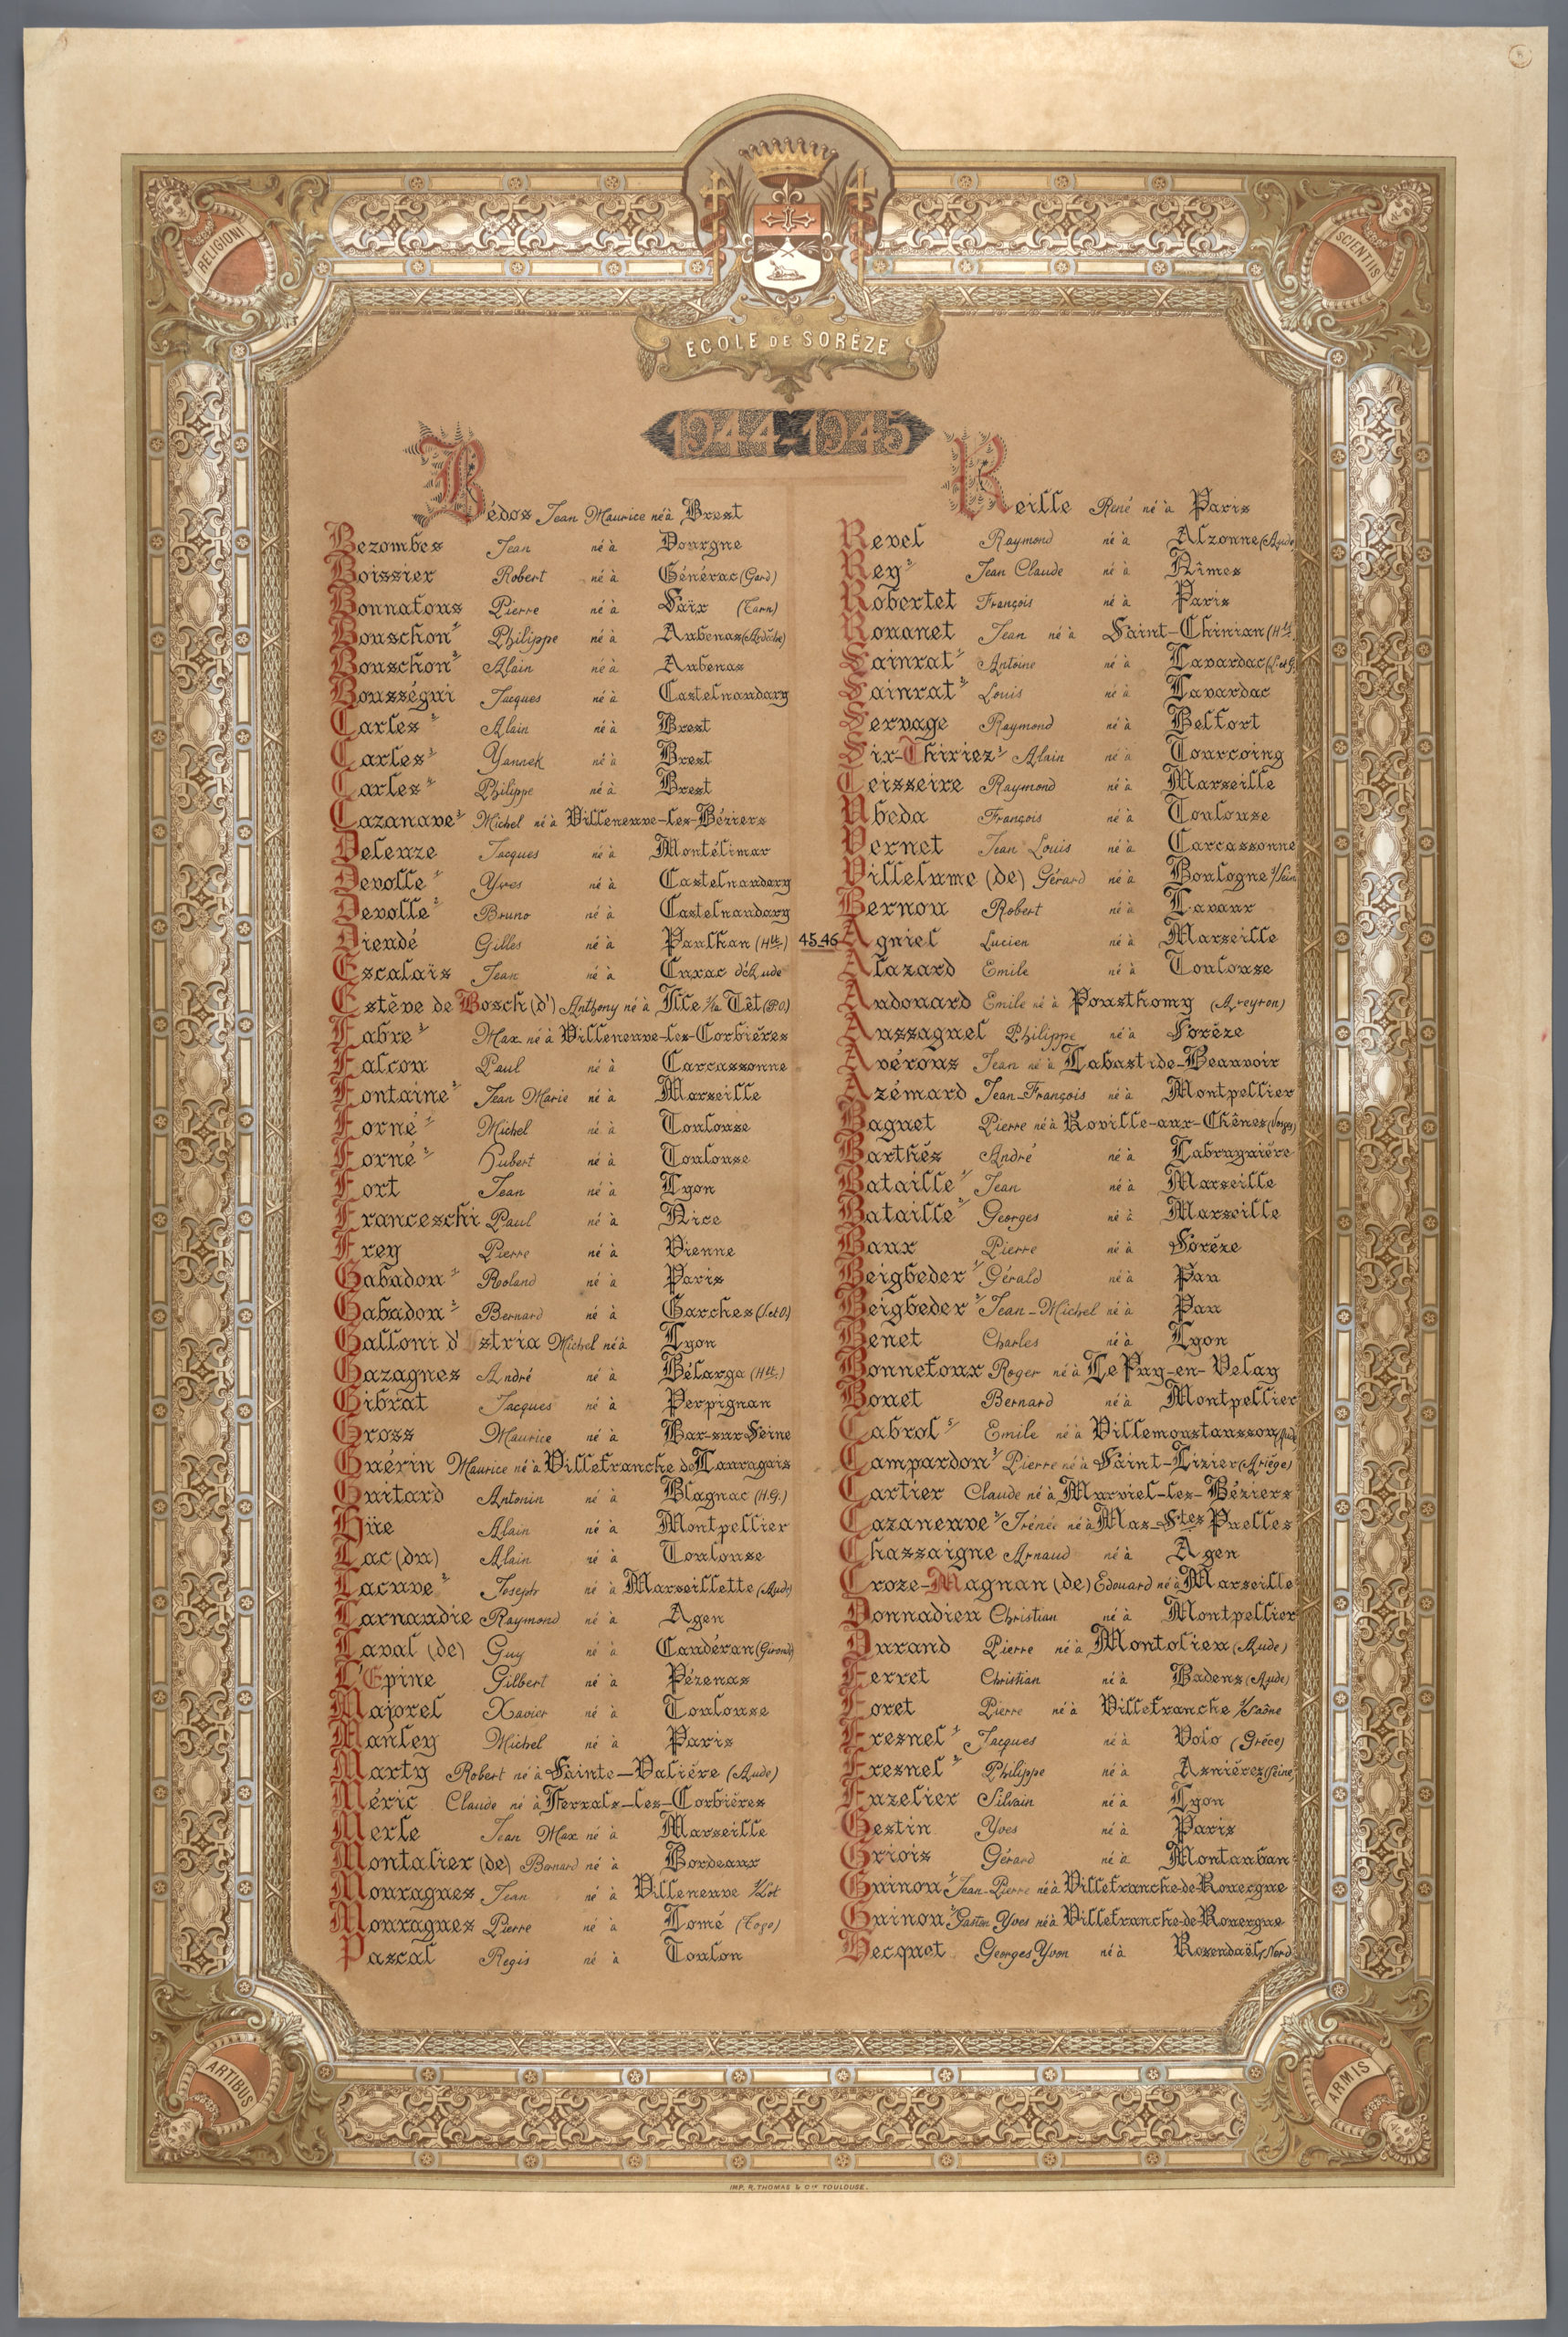 RELIGIONI
SCIENTIIS
ECOLE DE SORÈZE
1944-1945
Bédos Jean Maurice né à Brest
Bezombes Jean né à Dourgne
Boissier Robert né à Générac (Gard)
Bonnafous Pierre né à Saïx (Tarn)
Bouschon 1 Philippe né à Aubenas (Ardèche)
Bouschon 2 Alain né à Aubenas
Bousségui Jacques né à Castelnaudary
Carles 2 Alain né à Brest
Carles 3 Yannek né à Brest
Carles 4 Philippe né à Brest
Cazanave 3 Michel né à Villeneuve-les-Béziers
Deleuze Jacques né à Montélimar
Devolle 1 Yves né à Castelnaudary
Devolle 2 Bruno né à Castelnaudary
Dieudé Gilles né à Paulhan (Hlt.)
Escalaïs Jean né à Cuxac d'Aude
Estève de Bosch (d') Anthony né à Ille s/la Têt (P.O.)
Fabre 3 Max né à Villeneuve-les-Corbières
Falcou Paul né à Carcassonne
Fontaine 2 Jean Marie né à Marseille
Forné 1 Michel né à Toulouse
Forné 2 Hubert né à Toulouse
Fort Jean né à Lyon
Franceschi Paul né à Nice
Frey Pierre né à Vienne
Gabadou 1 Roland né à Paris
Gabadou 2 Bernard né à Garches (S.et O.)
Galloni d' stria Michel né à Lyon
Gazagnes André né à Bélarga (Hlt.)
Gibrat Jacques né à Perpignan
Gross Maurice né à Bar-sur Seine
Guérin Maurice né à Villefranche de Lauragais
Guitard Antonin né à Blagnac (H.G.)
Hüe Alain né à Montpellier
Lac (du) Alain né à Toulouse
Lacuve 2 Joseph né à Marseillette (Aude)
Larnaudie Raymond né à Agen
Laval (de) Guy né à Caudéran (Gironde)
L'Epine Gilbert né à Pézenas
Majorel Xavier né à Toulouse
Manley Michel né à Paris
Marty Robert né à Sainte-Valière (Aude)
Méric Claude né à Ferrals-les-Corbières
Merle Jean Max né à Marseille
Montalier (de) Bernard né à Bordeaux
Mouragues Jean né à Villeneuve s/Lot
Mouragues Pierre né à Lomé (Togo)
Pascal Regis né à Toulon
Reille René né à Paris
Revel Raymond né à Alzonne (Aude)
Rey 2 Jean Claude né à Nîmes
Robertet François né à Paris
Rouanet Jean né à Saint-Chinian (Hlt.
Sainrat 1 Antoine né à Lavardac (L.et G.)
Sainrat 2 Louis né à Lavardac
Servage Raymond né à Belfort
Six-Thiriez 3 Alain né à Tourcoing
Teisseire Raymond né à Marseille
Ubeda François né à Toulouse
Vernet Jean Louis né à Carcassonne
Villelume (de) Gérard né à Boulogne s/Seine
Bernou Robert né à Lavaur
45.46 Agniel Lucien né à Marseille
Alazard Emile né à Toulouse
Audouard Emile né à Pousthomy (Aveyron)
Aussaguel Philippe né à Sorèze
Avérous Jean né à Labastide-Beauvoir
Azémard Jean-François né à Montpellier
Baguet Pierre né à Roville-aux-Chênes (Vosges)
Barthés André né à Labruguière
Bataille 1 Jean né à Marseille
Bataille 2 Georges né à Marseille
Baux Pierre né à Sorèze
Beigbeder 1 Gérald né à Pau
Beigbeder 2 Jean-Michel né à Pau
Benet Charles né à Lyon
Bonnefoux Roger né à Le Puy-en-Velay
Bouet Bernard né à Montpellier
Cabrol 5 Emile né à Villemoustaussou (Aude)
Campardou 3 Pierre né à Saint-Lizier (Ariège)
Cartier Claude né à Murviel-les-Béziers
Cazaneuve 3 Irénée né à Mas-Stes Puelles
Chassaigne Arnaud né à Agen
Croze-Magnan (de) Edouard né à Marseille
Donnadieu Christian né à Montpellier
Durand Pierre né à Montolieu (Aude)
Ferret Christian né à Badens (Aude)
Foret Pierre né à Villefranche s/Saône
Fresnel 1 Jacques né à Volo (Grèce)
Fresnel 2 Philippe né à Asnières (Seine)
Fuzelier Silvain né à Lyon
Gestin Yves né à Paris
Griois Gérard né à Montauban
Guinou 1 Jean-Pierre né à Villefranche-de-Rouergue
Guinou 2 Gaston Yves né à Villefranche-de-Rouergue
Hecquet Georges Yvon né à Rosendaël (Nord)
ARTIBUS
ARMIS
IMP. R. THOMAS & Cie TOULOUSE.